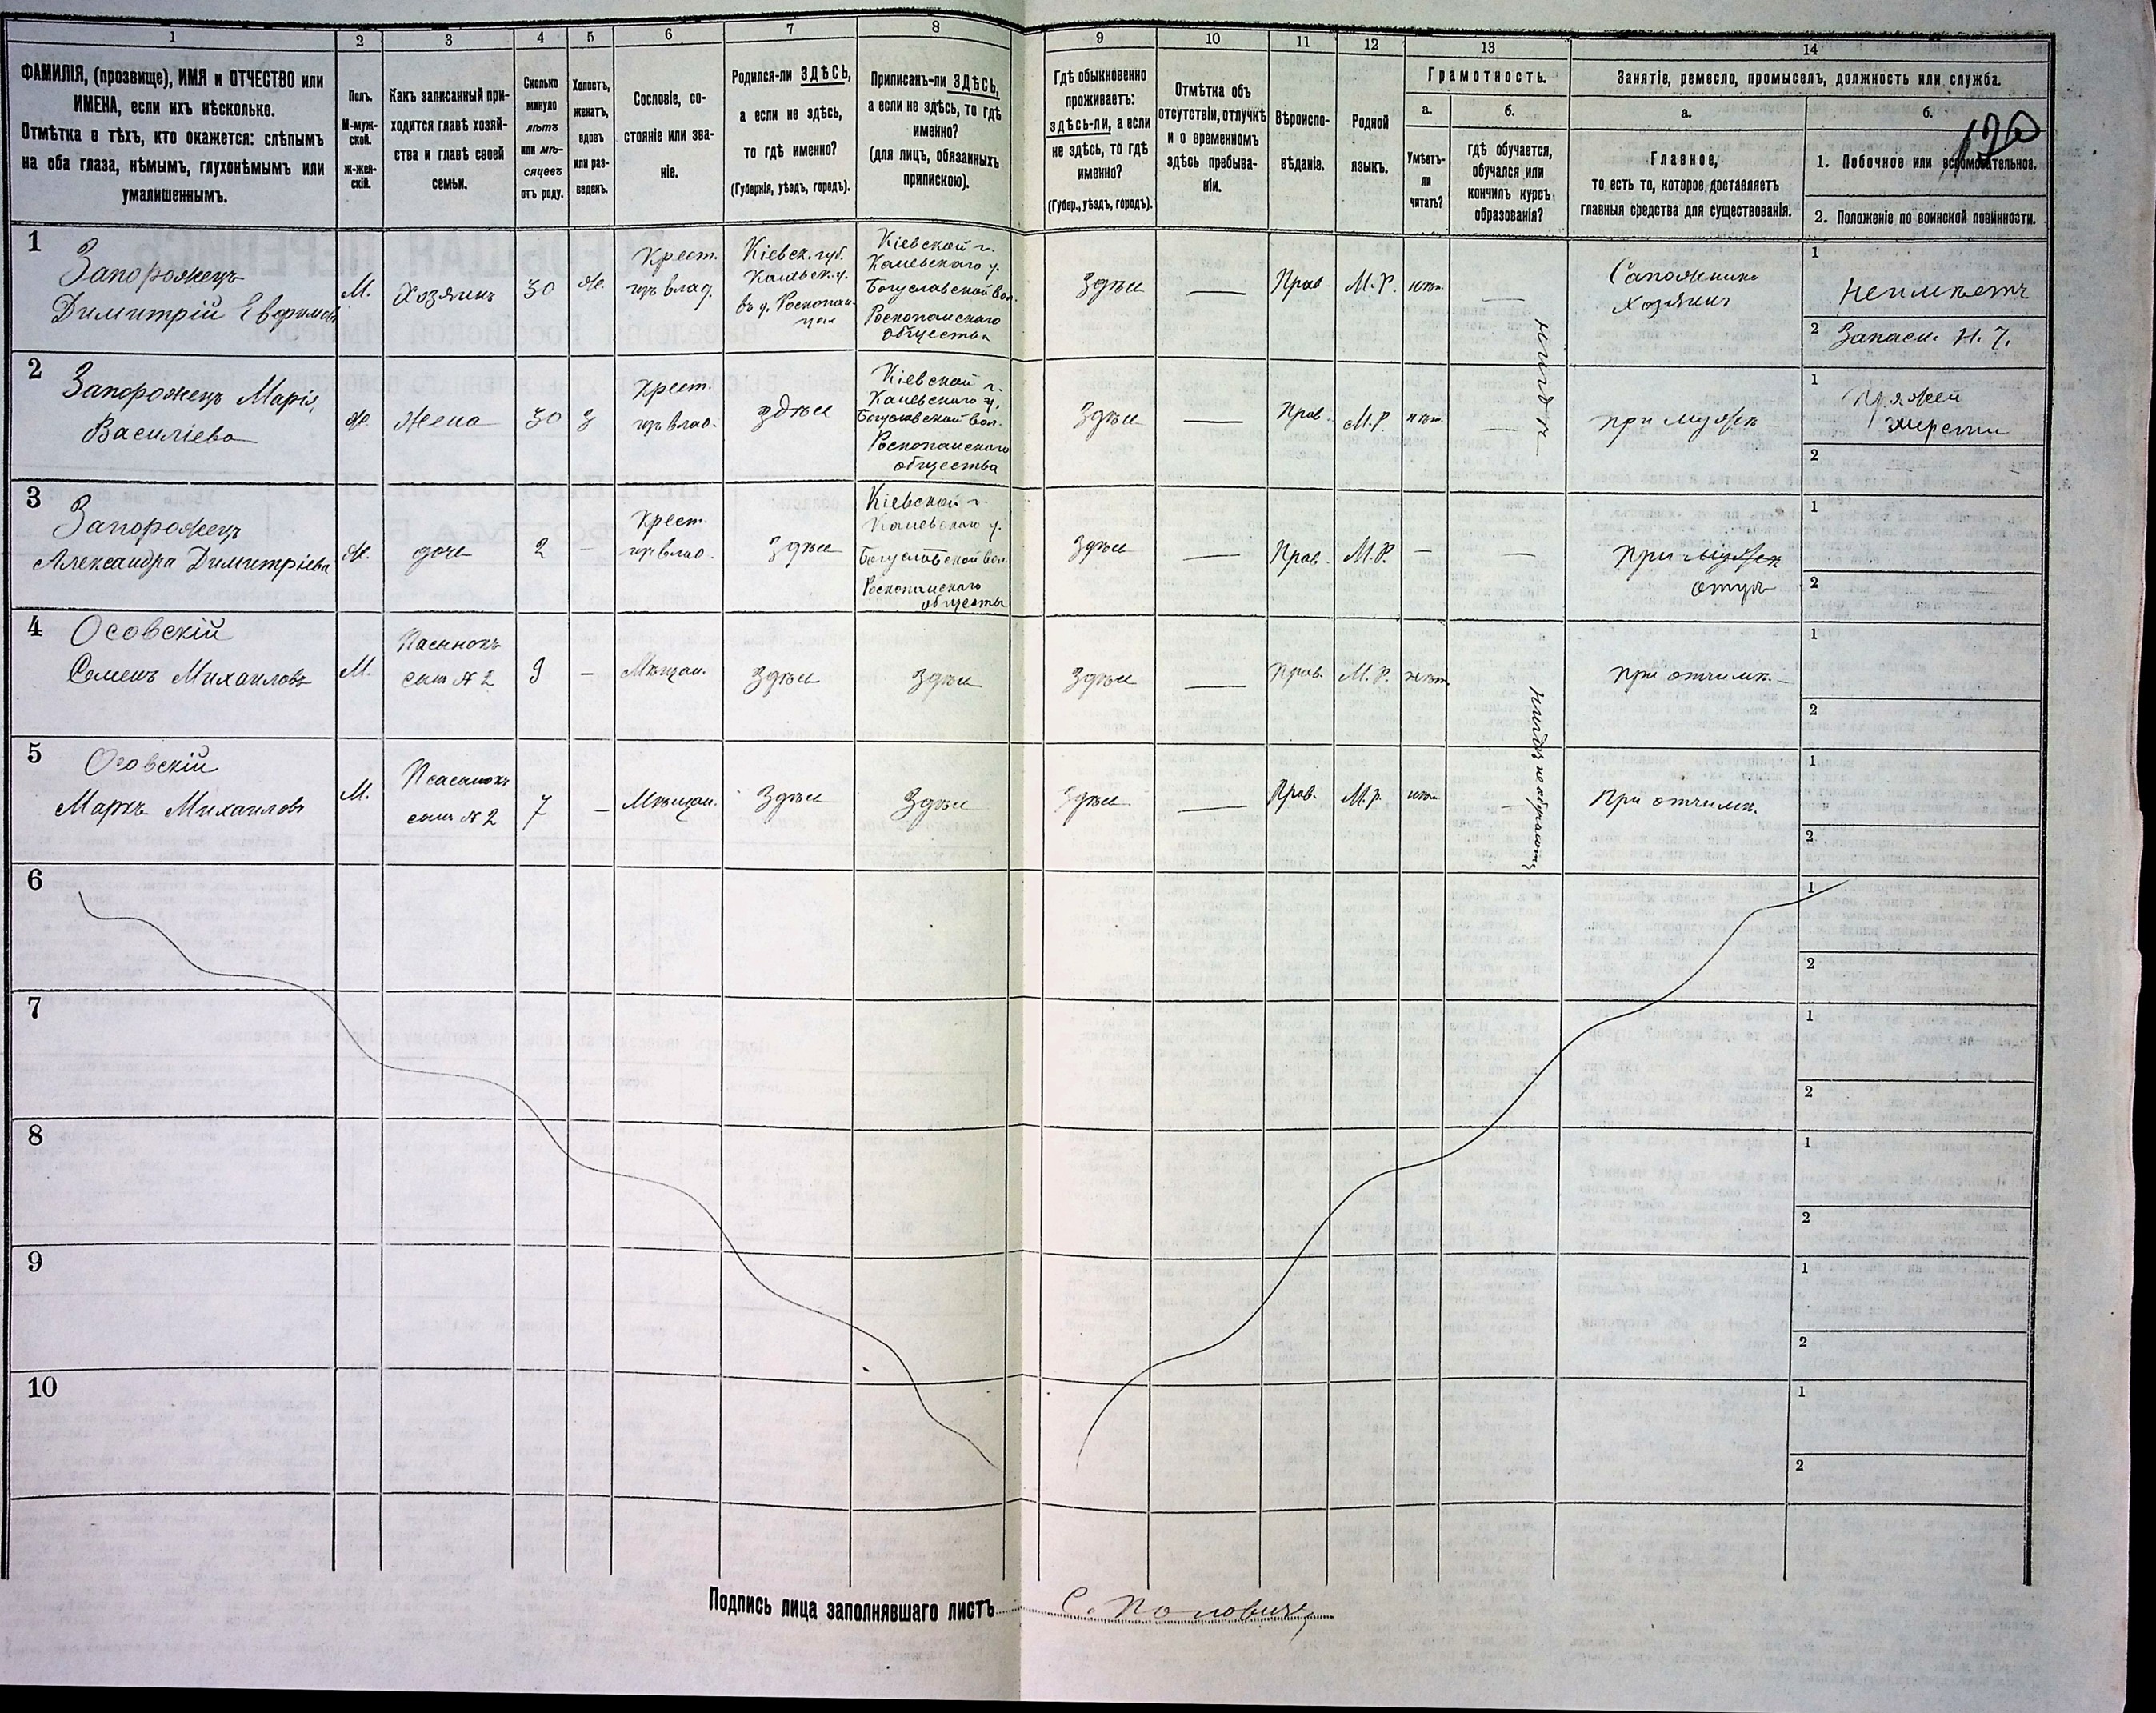 1 2 3 4 5 6 7 8 9 10 11 12 13 14
ФАМИЛІЯ, (прозвище), ИМЯ и ОТЧЕСТВО или
ИМЕНА, если ихъ нѣсколько.
Отмѣтка о тѣхъ, кто окажется: слѣпымъ
на оба глаза, нѣмымъ, глухонѣмымъ или
умалишеннымъ.
Полъ.
М-муж-
ской.
Ж-жен-
скій.
Какъ записанный при-
ходится главѣ хозяй-
ства и главѣ своей
семьи.
Сколько
минуло
лѣтъ
или мѣ-
сяцевъ
отъ роду.
Холостъ,
женатъ,
вдовъ
или раз-
веденъ.
Сословіе, со-
стояніе или зва-
ніе.
Родился-ли ЗДѢСЬ,
а если не здѣсь,
то гдѣ именно?
(Губернія, уѣздъ, городъ).
Приписанъ-ли ЗДѢСЬ,
а если не здѣсь, то гдѣ
именно?
(для лицъ, обязанныхъ
припискою).
Гдѣ обыкновенно
проживаетъ:
здѣсь-ли, а если
не здѣсь, то гдѣ
именно?
(Губер., уѣздъ, городъ).
Отмѣтка объ
отсутствіи, отлучкѣ
и о временномъ
здѣсь пребыва-
ніи.
Вѣроиспо-
вѣданіе.
Родной
языкъ.
Грамотность.
а.
Умѣетъ-
ли
читать?
б.
гдѣ обучается,
обучался или
кончилъ курсъ
образованія?
Занятіе, ремесло, промыселъ, должность или служба.
а.
Главное,
то есть то, которое доставляетъ
главныя средства для существованія.
б.
120
1. Побочное или вспомогательное.
2. Положеніе по воинской повинности.
1
Запорожецъ
Димитрій Евфимовъ
М.
Хозяинъ
30
Ж.
Крест.
Кіевск. губ.
Каневск. у.
Кіевской г.
Каневскаго у.
Богуславской вол.
Роскопанскаго
общества
Здѣсь
—
Прав
М.Р.
нѣт
—
нигдѣ
Сапожникъ
Хозяинъ
1
Неимѣетъ
2 Запасн. Н. Ч.
2
Запорожецъ Марія
Василіева
Ж.
Жена
30
З
Крест.
здѣсь
Кіевской г.
Каневскаго у.
Богуславской вол.
Роскопанскаго
общества
Здѣсь
—
Прав.
М.Р.
нѣт.
—
при мужѣ
1
шерсти
2
3
Запорожецъ
Александра Димитріева
Ж.
дочь
2
—
Крест.
Здѣсь
Кіевской г.
Каневскаго у.
Богуславской вол.
Роскопанскаго
общества
Здѣсь
—
Прав.
М.Р.
—
—
При мужѣ
отцѣ
1
2
4
Осовскій
Семенъ Михаиловъ
М.
Пасынокъ
сын № 2
9
—
Мѣщан.
Здѣсь
Здѣсь
Здѣсь
—
Прав.
М.Р.
нѣт.
нигдѣ не обучаются
При отчимѣ.
1
2
5
Осовскій
Маркъ Михаиловъ
М.
Псасынокъ
сын № 2
7
—
Мѣщан.
Здѣсь
Здѣсь
Здѣсь
—
Прав.
М.Р.
нѣт
—
При отчимѣ.
1
2
6
1
2
7
1
2
8
1
2
9
1
2
10
1
2
Подпись лица заполнявшаго листъ С. Поповичъ